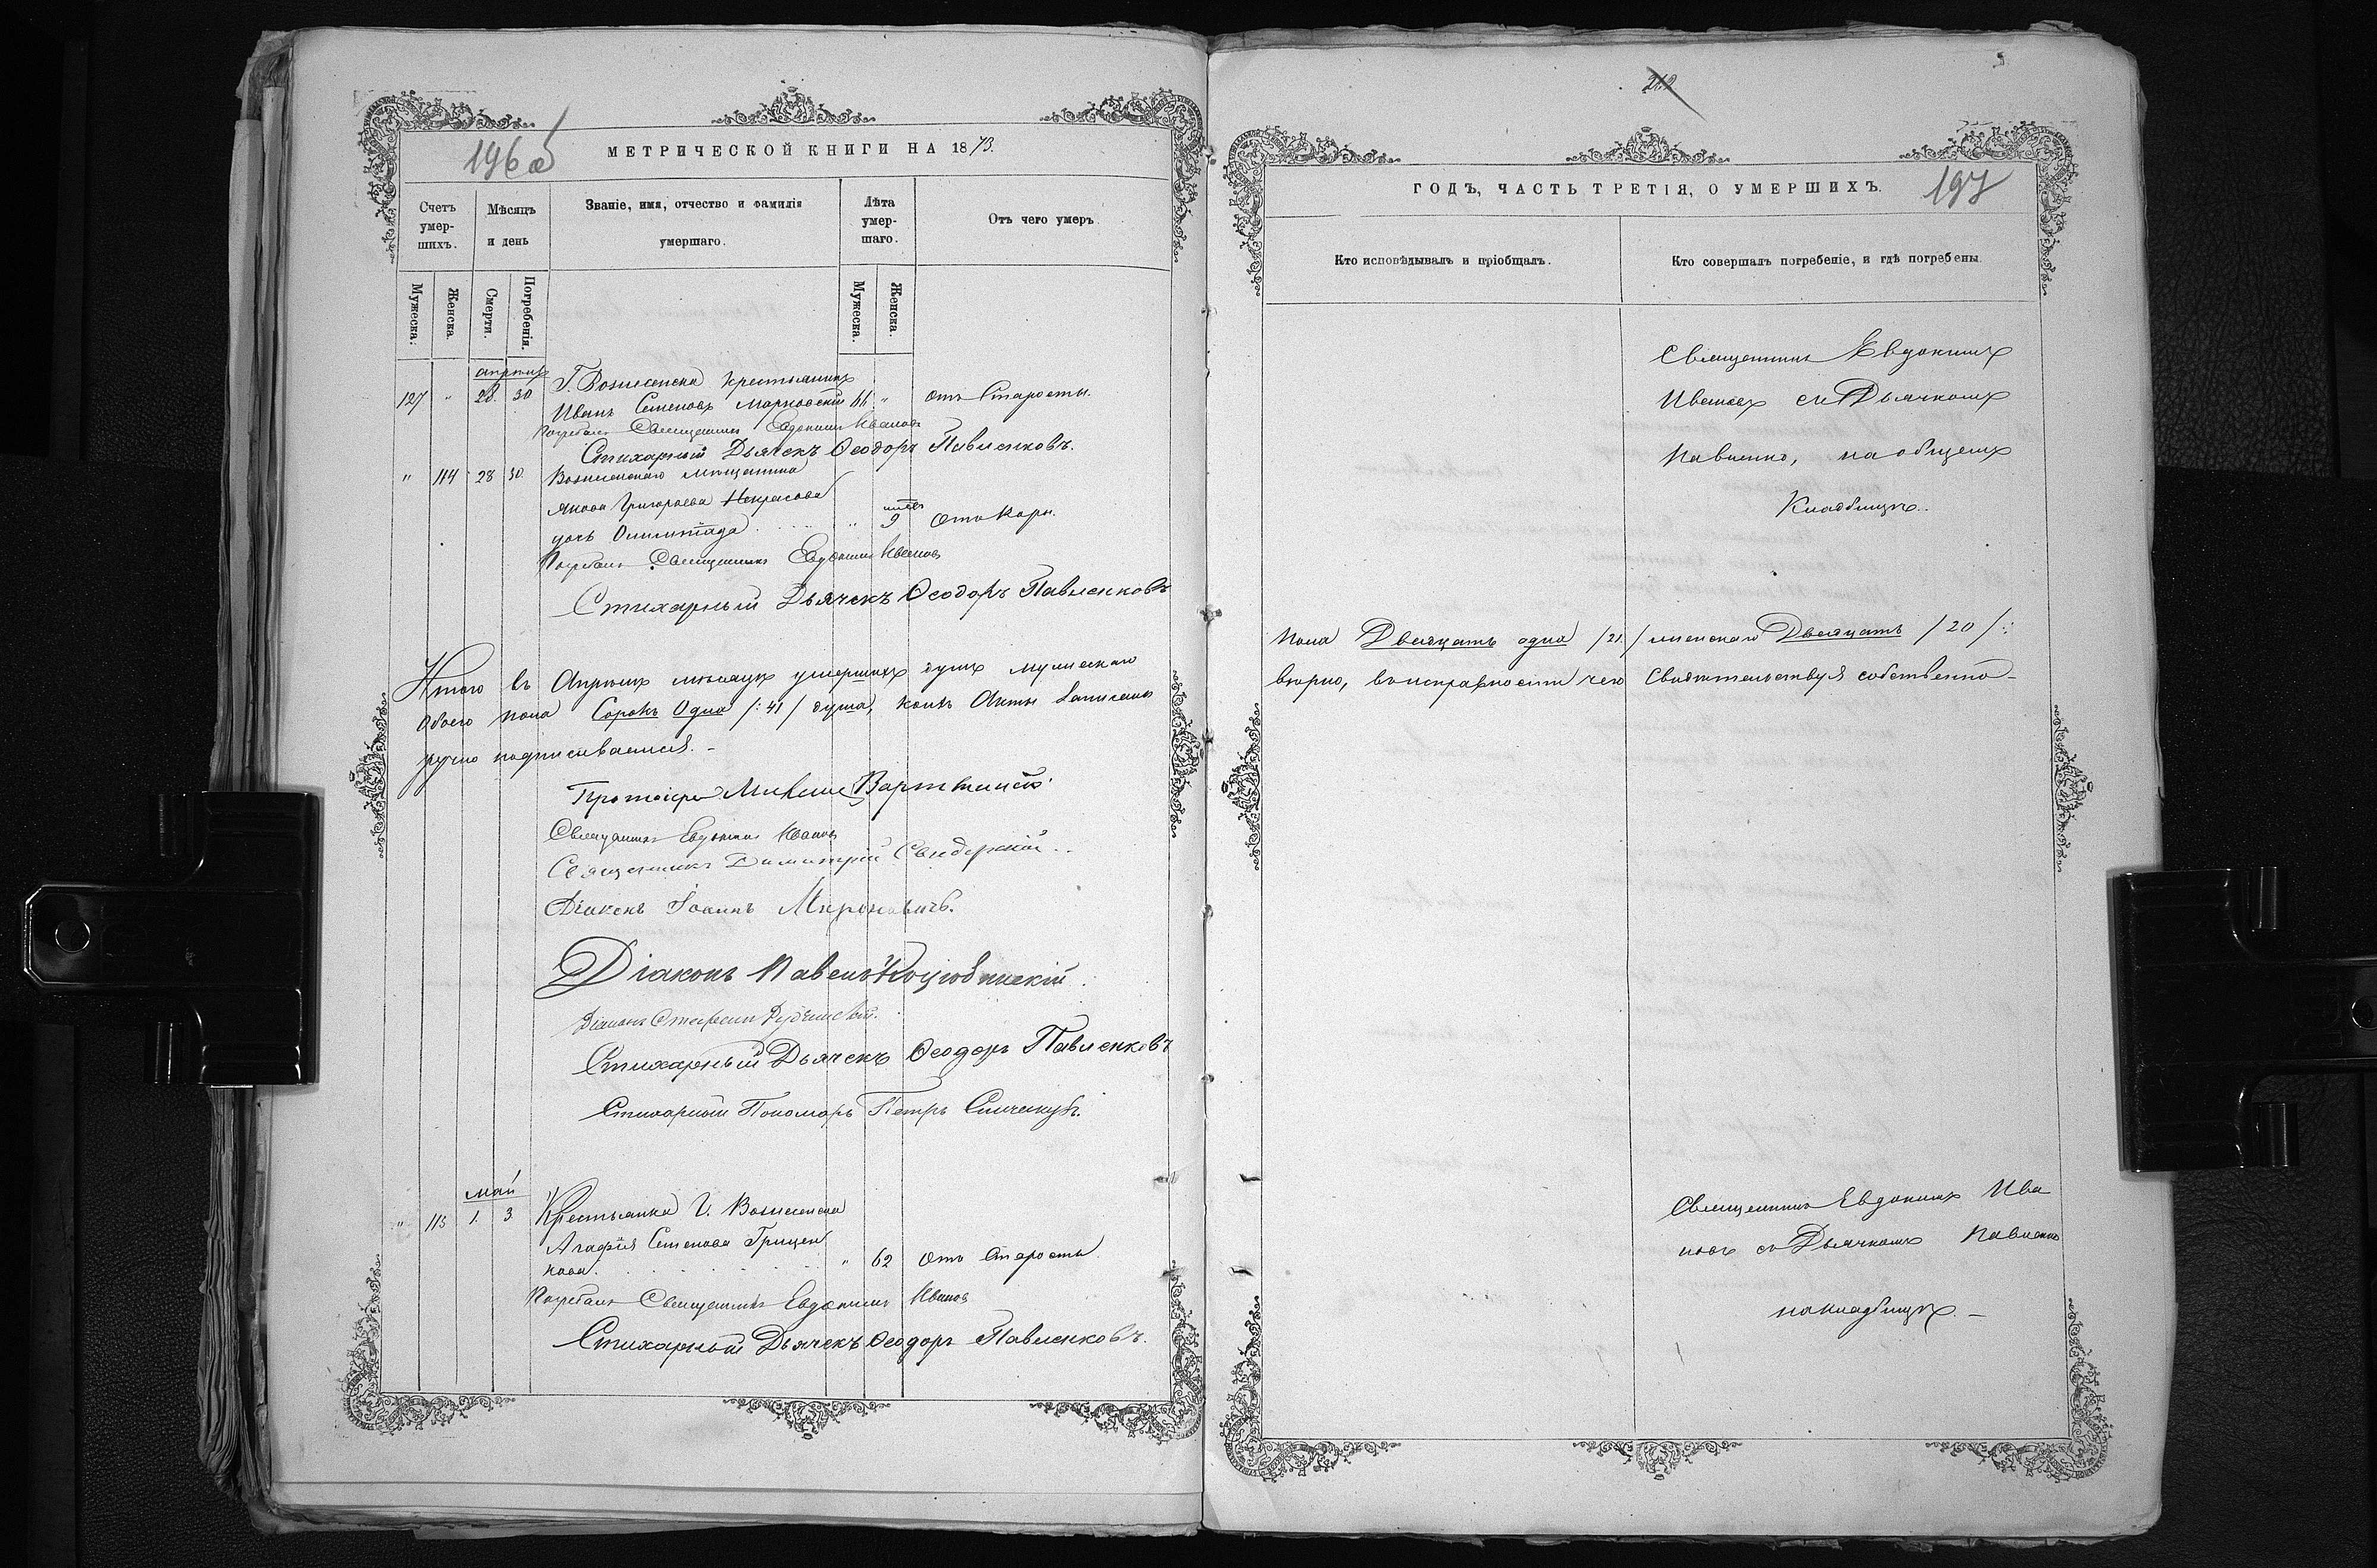 196 об
МЕТРИЧЕСКОЙ КНИГИ НА 1873.
Счетъ умер-шихъ.
Мѣсяцъ и день
Званіе, имя, отчество и фамилія умершаго.
Лѣта умер-шаго.
Отъ чего умеръ
Мужеска.
Женска.
Смерти.
Погребенія.
Мужеска.
Женска.
Апрель
127 " 28. 30 Г. Вознесенска крестьянинъ
Иванъ Семеновъ 66 " отъ Старости.
Погребалъ Священникъ Евдокимъ Ивановъ
Стихарный Дьячекъ Ѳеодоръ Павленковъ.
" 114 28 30. Вознесенскаго мещанина
Якова Григорьева Некрасова
дочь Олимпiада " 9 мцевъ отъ Кори.
Погребалъ Священникъ Евдокимъ Ивановъ
Стихарный Дьячекъ Ѳеодоръ Павленковъ
Итого въ Апрѣлѣ мѣсяцѣ умершихъ душъ мужескаго
обоего пола Сорокъ Одна /:41/ душа, коихъ Акты записаны
ручно подписываемся. -
Протоіерей
Священникъ Евдокимъ Ивановъ
Священникъ Димитрій Свидерскій..
Діаконъ Іоаннъ Мироновичъ.
Діаконъ Павелъ Коцюбинскій.
Діаконъ Стефанъ
Стихарный Дьячекъ Ѳеодоръ Павленковъ
Стихарный Пономарь Петръ
Май
" 115 1. 3 Крестьянка Г. Вознесенска
Агафія Семенова Грицен
кова. " 62 отъ Старости
Погребалъ Священникъ Евдокимъ Ивановъ
Стихарный Дьячекъ Ѳеодоръ Павленковъ.
212
ГОДЪ, ЧАСТЬ ТРЕТІЯ, О УМЕРШИХЪ.
197
Кто исповѣдывалъ и пріобщалъ.
Кто совершалъ погребеніе, и гдѣ погребены.
Священникъ Евдокимъ
Ивановъ съ Дьячкомъ
Павленко, на общемъ
Кладбищѣ.
пола Двадцать одна /21./ женскаго Двадцать /20/:
вѣрно, въ исправности чего Свидѣтельствуя собственно-
Священникъ Евдокимъ Ива
новъ съ Дьячкомъ Павленко
на кладбищѣ –